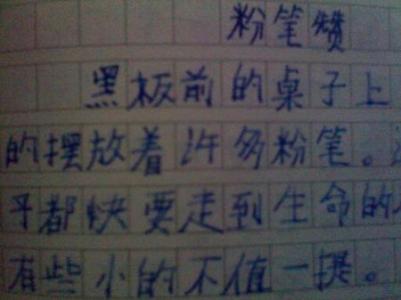 粉笔赞
黑板前的桌子上
的摆放着许多粉笔。
乎都快要走到生命的
有些小的不值一提。